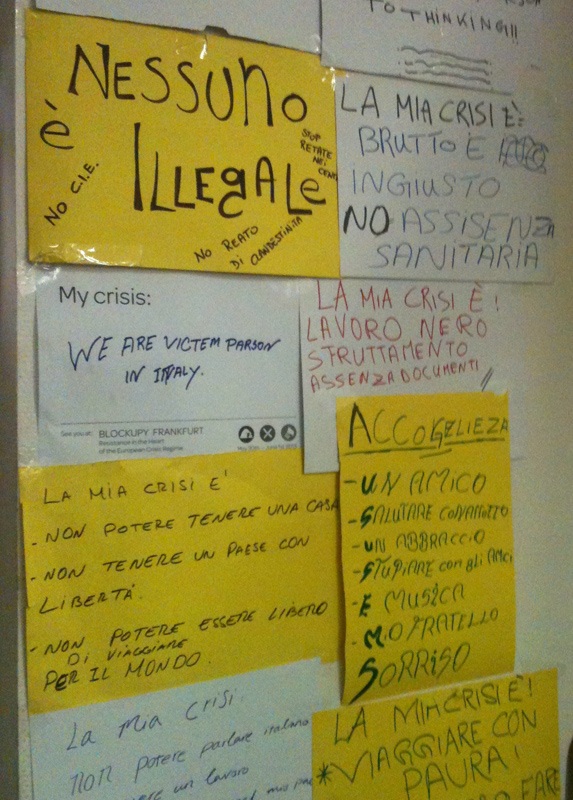 TO THINKING!!
NESSUNO
è
ILLEGALE
NO C.I.E.
STOP
RETATE
NEI
NO REATO
DI CLANDESTINITÀ
LA MIA CRISI È:
BRUTTO E
INGIUSTO
NO ASSISENZA
SANITARIA
My crisis:
WE ARE VICTEM PARSON
IN ITALY.
See you at: BLOCKUPY FRANKFURT
Resistance in the Heart
of the European Crisis Regime
LA MIA CRISI È!
LAVORO NERO
STRUTTAMENTO
ASSENZA DOCUMENTI
ACCOGELIEZA
- UN AMICO
- SALUTARE
- UN ABBRACCIO
- STUPIARE con gli AMCI
- E MUSICA
- MIO FRATELLO
SORRISO
LA MIA CRISI E'
- NON POTERE TENERE UNA CASA
- NON TENERE UN PAESE CON
LIBERTÀ.
- NON POTERE ESSERE LIBERO
DI VIAGGIARE
PER IL MONDO.
La mia crisi
non potere parlare italiano
un lavoro
LA MIA CRISI È!
* VIAGGIARE CON
PAURA!
FARE